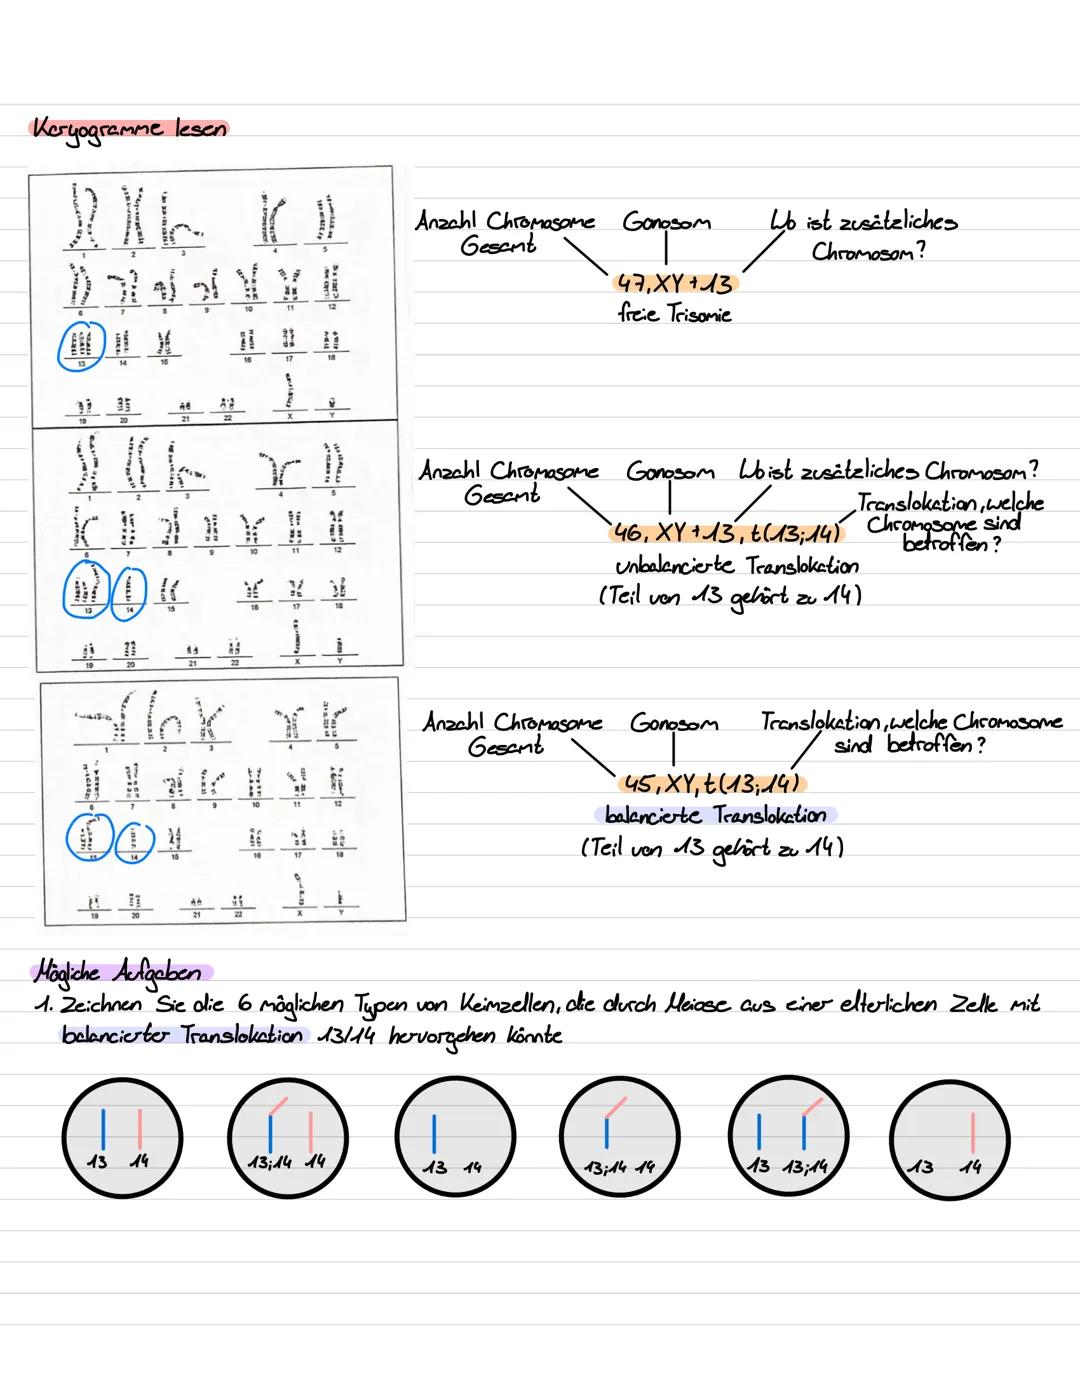 Karyogramme lesen
Anzahl Chromosome Gonosom Wo ist zusätzliches
Gesamt Chromosom?
47,XY+13
freie Trisomie
1 2 3 4 5
6 7 8 9 10 11 12
13 14 15 16 17 18
19 20 21 22 X Y
Anzahl Chromosome Gonosom Wo ist zusätzliches Chromosom?
Gesamt Translokation, welche
Chromosome sind
betroffen?
46, XY+13, t(13;14)
unbalancierte Translokation
(Teil von 13 gehört zu 14)
1 2 3 4 5
6 7 8 9 10 11 12
13 14 15 16 17 18
19 20 21 22 X Y
Anzahl Chromosome Gonosom Translokation, welche Chromosome
Gesamt sind betroffen?
45, XY, t(13;14)
balancierte Translokation
(Teil von 13 gehört zu 14)
1 2 3 4 5
6 7 8 9 10 11 12
13 14 15 16 17 18
19 20 21 22 X Y
Mögliche Aufgaben
1. Zeichnen Sie die 6 möglichen Typen von Keimzellen, die durch Meiose aus einer elterlichen Zelle mit
balancierter Translokation 13/14 hervorgehen könnte
13 14 13;14 14 13 14 13;14 14 13 13;14 13 14